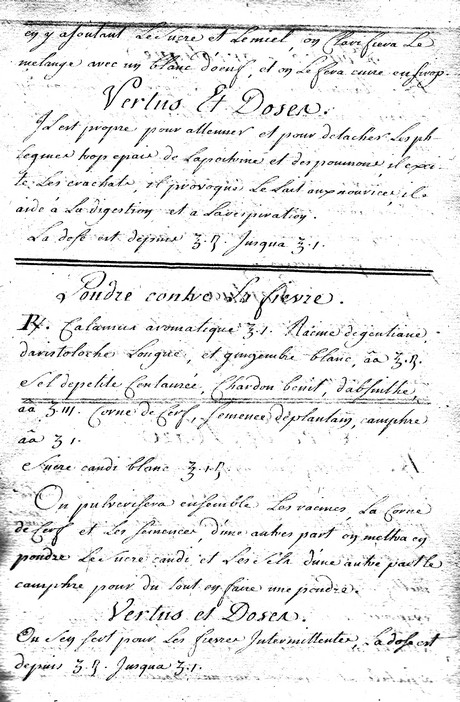 en y ajoutant Le Sucre et Lemiel, on Clarifiera Le
melange avec un blanc d'oeuf, et on Le fera cuire en sirop.
Vertus Et Doses.
Il est propre pour attenuer et pour detacher Les ph
Legmes trop epais de Lapoitrine et des poumons, il exci-
te Les crachats, il provoque Le Lait aux nourices, il
aide à La digestion et a Larespiration.
La dose est depuis ʒ.ß. Jusqua ʒ.1.
Poudre contre La fievre.
℞. Calamus aromatique ʒ.1. Racine degentiane,
daristoloche Longue, et gingembre blanc, āā ʒ.ß.
Sel depetite Centaurée, Chardon benit, d'absinthe,
āā ʒ.III. Corne de Cerf, semence deplantain, camphre
āā ʒ.1.
Sucre candi blanc ʒ.1.ß.
On pulverisera ensemble Les racines, La Corne
de Cerf et Les semences, d'une autres part on mettra en
poudre Le Sucre candi et Les Sels d'une autre part le
camphre pour du tout en faire une poudre.
Vertus et Doses.
On Sen sert pour Les fievres Intermittentes, La dose est
depuis ʒ.ß. Jusqua ʒ.1.